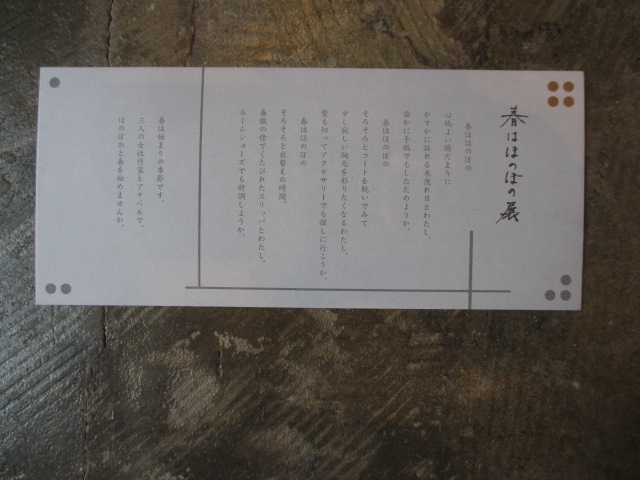 春はほのぼの展
春はほのぼの
心地よい陽だまりに
かすかに揺れる木洩れ日とわたし。
誰かに手紙でもしたためようか。
春はほのぼの
そろそろとコートを脱いでみて
少し寂しい胸元を彩りたくなるわたし。
髪も切ってアクセサリーでも探しに行こうか。
春はほのぼの
そろそろと衣替えの時間。
春眠の傍でくたびれたスリッパとわたし。
ルームシューズでも新調しようか。
春は始まりの季節です。
三人の女性作家とアチベルで、
ほのぼのと春を始めませんか。